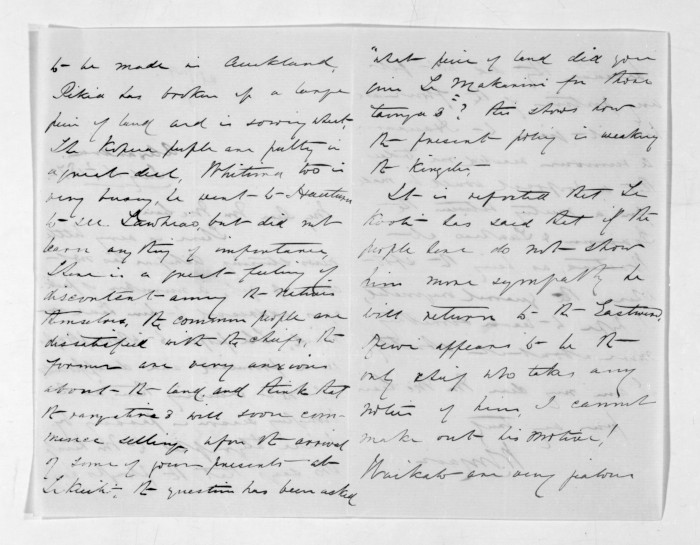 to be made in Auckland,
Rikia has broken up a large
piece of land and is sowing wheat,
The Kopua people are putting in
a great deal, Whitiora too is
very busy, he went to Hauturu
to see Tawhiao, but did not
learn anything of importance,
There is a great feeling of
discontent among the natives
themselves, the common people are
dissatisfied with the chiefs, the
former are very anxious
about the land, and think that
the rangatiras will soon com-
mence selling, upon the arrival
of some of your presents at
Te Kuiti, the question has been asked
"what piece of land did you
give Te for those
taonga's"? This shows how
the present policy is weakening
the Kingites,
It is reported that Te
Kooti has said that if the
people here do not show
him more sympathy he
will return to the Eastward,
Rewi appears to be the
only chief who takes any
notice of him, I cannot
make out his motive!
Waikato are very jealous